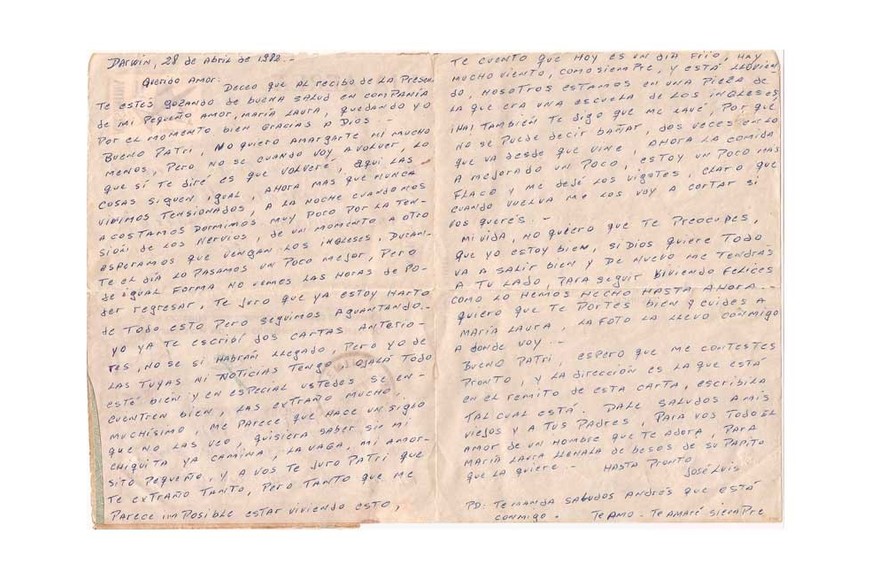 Darwin, 28 de Abril de 1982.-
Querido Amor:
Deceo que al recibo de la presen
te estés gozando de buena salud en compañia
de mi pequeño amor, María Laura, quedando yo
por el momento bien gracias a Dios.-
Bueno Patri, no quiero amargarte ni mucho
menos, pero no se cuando voy a volver, lo
que sí te diré es que volveré, aqui las
cosas siguen igual, ahora mas que nunca
vivimos tensionados, a la noche cuando nos
acostamos dormimos muy poco por la ten-
sión de los nervios, de un momento a otro
esperamos que vengan los ingleses, duran-
te el día lo pasamos un poco mejor, pero
de igual forma no vemos las horas de po-
der regresar, te juro que ya estoy harto
de todo esto pero seguimos aguantando.-
yo ya te escribí dos cartas anterio-
res, no se si habrán llegado, pero yo de
las tuyas ni noticias tengo, ojalá todo
esté bien y en especial ustedes se en-
cuentren bien, las extraño mucho,
muchísimo, me parece que hace un siglo
que no las veo, quisiera saber si mi
chiquita ya camina, la vaga, mi amor-
sito pequeño, y a vos te juro Patri que
te extraño tanto, pero tanto que me
parece imposible estar viviendo esto,
te cuento que hoy es un día frío, hay
mucho viento, como siempre, y está llovien
do, nosotros estamos en una pieza de
la que era una escuela de los ingleses
¡ha! también te digo que me lavé, por que
no se puede decir bañar, dos veces en lo
que va desde que vine, ahora la comida
a mejorado un poco, estoy un poco mas
flaco y me dejé los vigotes, claro que
cuando vuelva me los voy a cortar si
vos querés.-
mi vida, no quiero que te preocupes,
que yo estoy bien, si Dios quiere todo
va a salir bien y de nuevo me tendrás
a tu lado, para seguir viviendo felices
como lo hemos hecho hasta ahora.-
quiero que te portes bien y cuides a
María Laura, la foto la llevo conmigo
a donde voy.-
Bueno Patri, espero que me contestes
pronto, y la dirección es la que está
en el remito de esta carta, escribila
tal cual está. Dale saludos a mis
viejos y a tus padres, para vos todo el
amor de un hombre que te adora, para
María Laura llenala de besos de su papito
que la quiere.- Hasta pronto
José Luis
PD: Te manda saludos Andrés que está
conmigo.- Te amo - Te amaré siempre